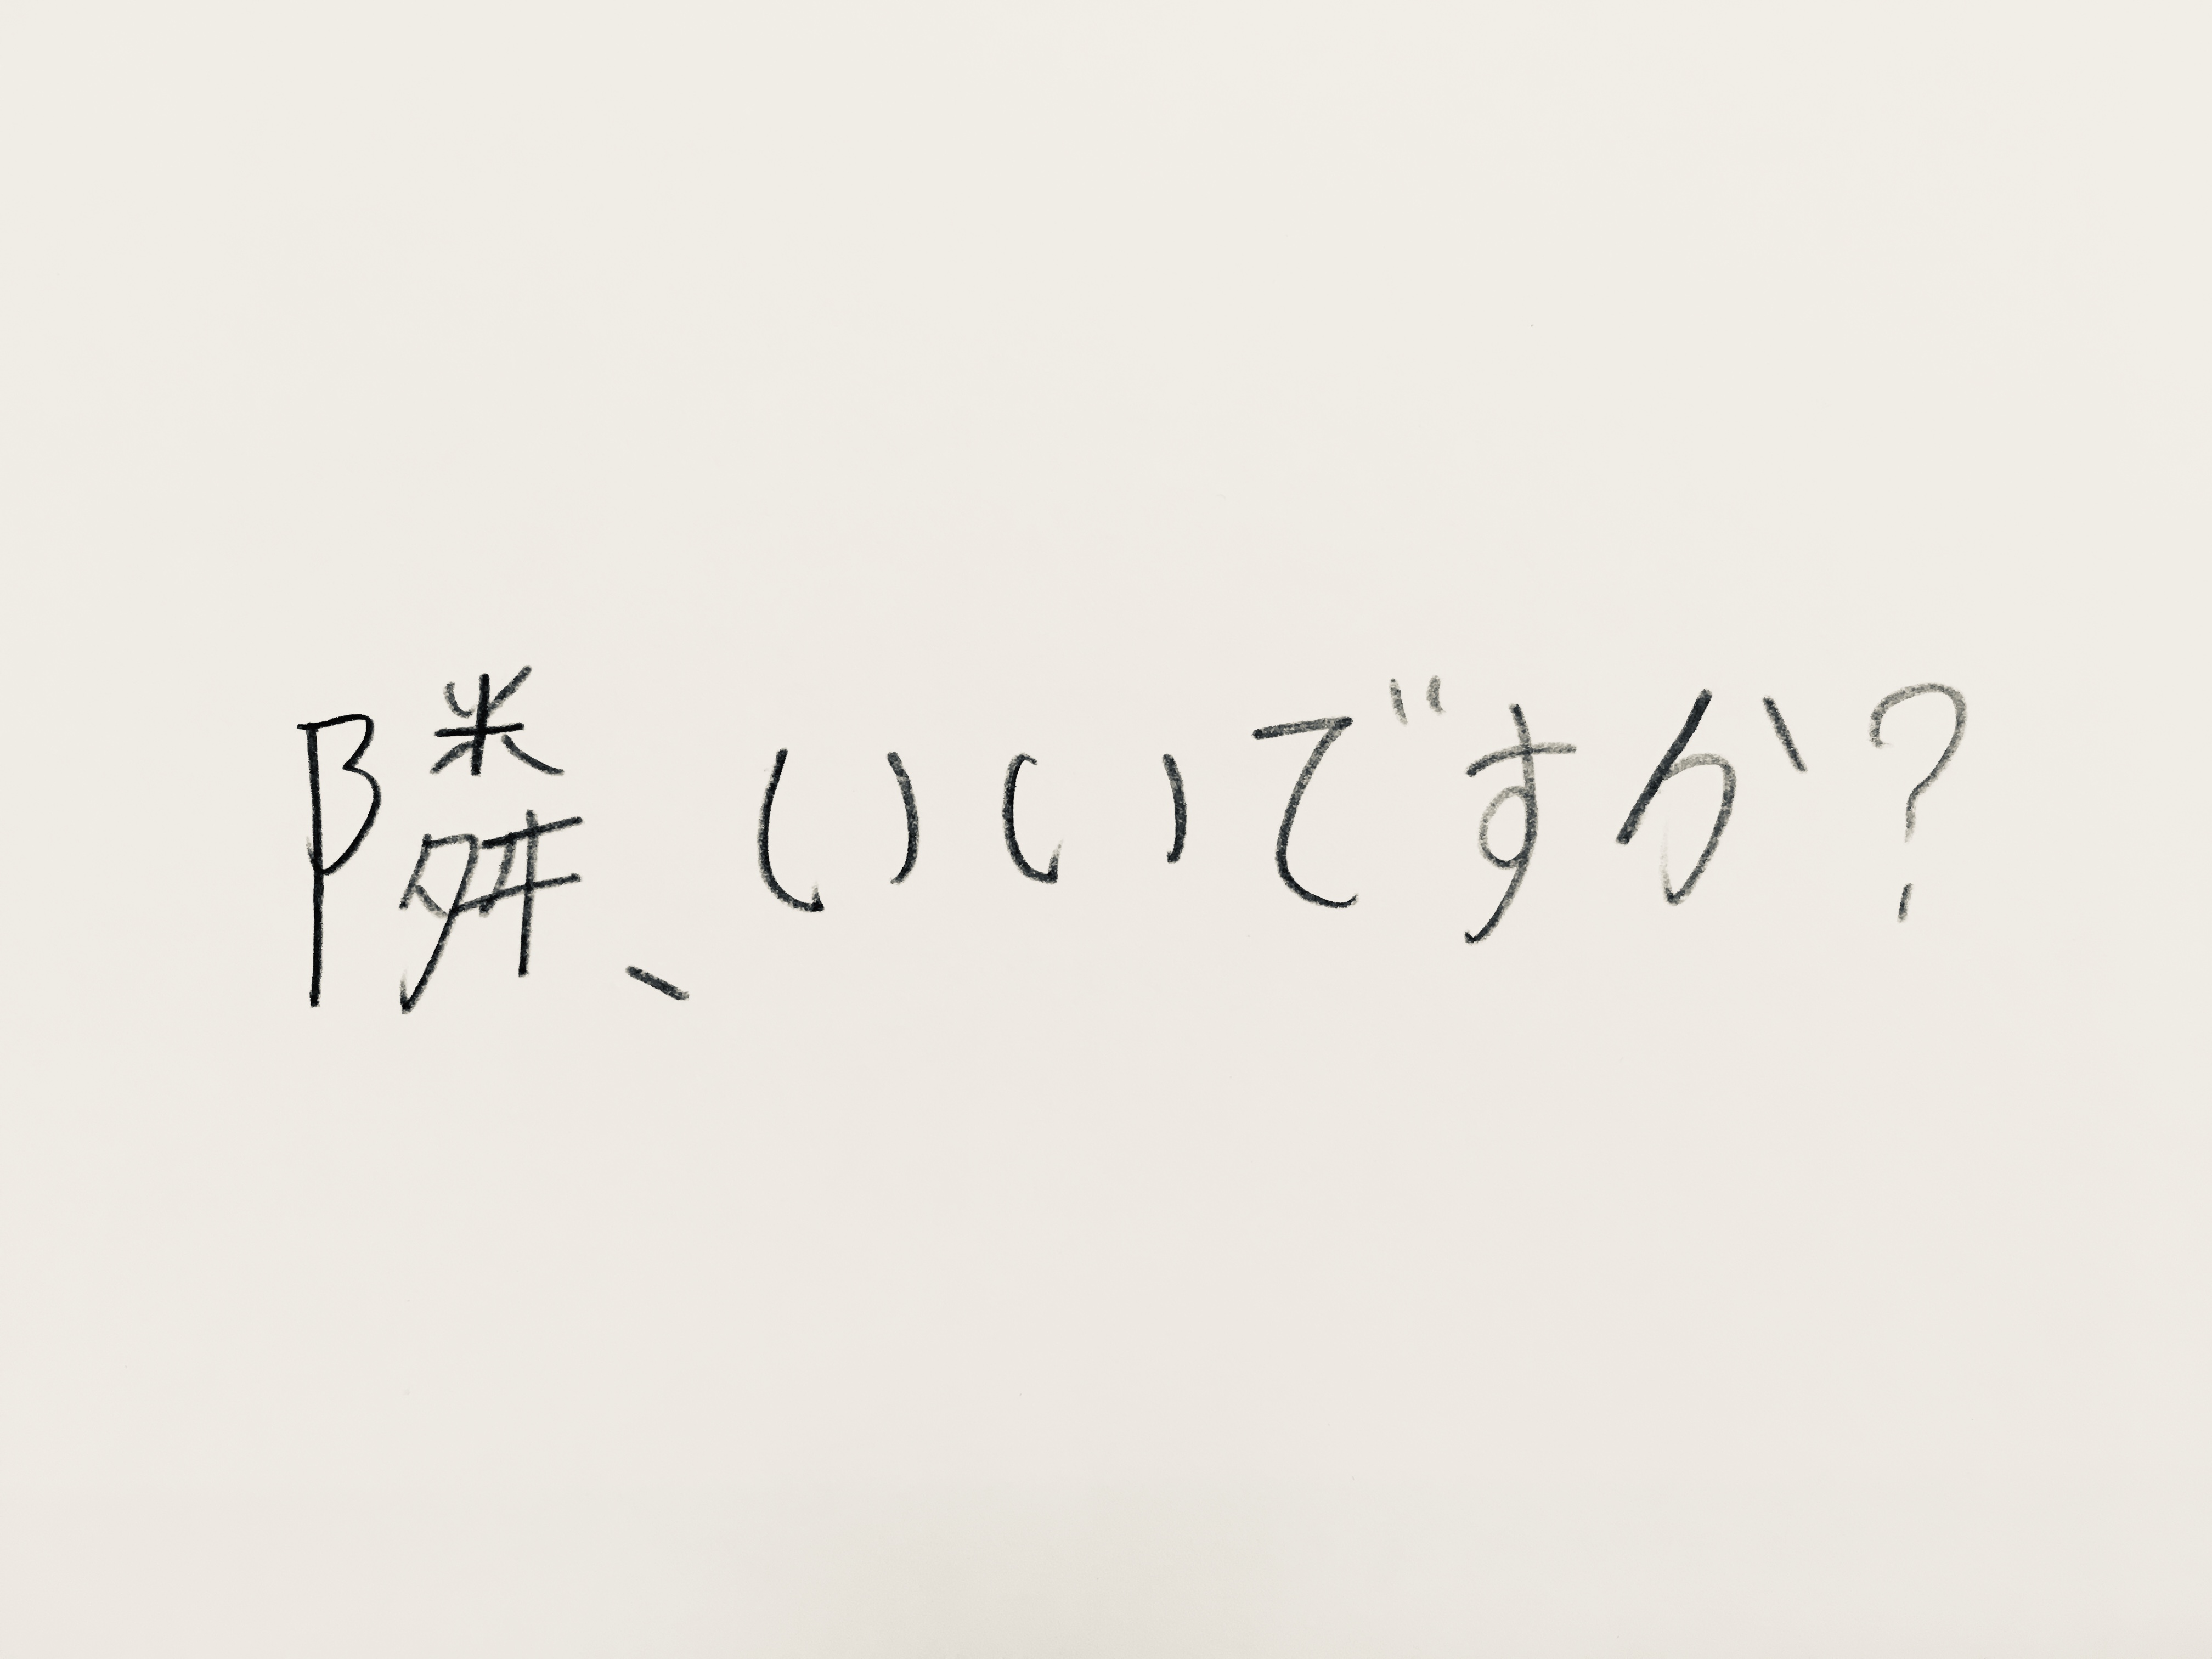 隣、いいですか?